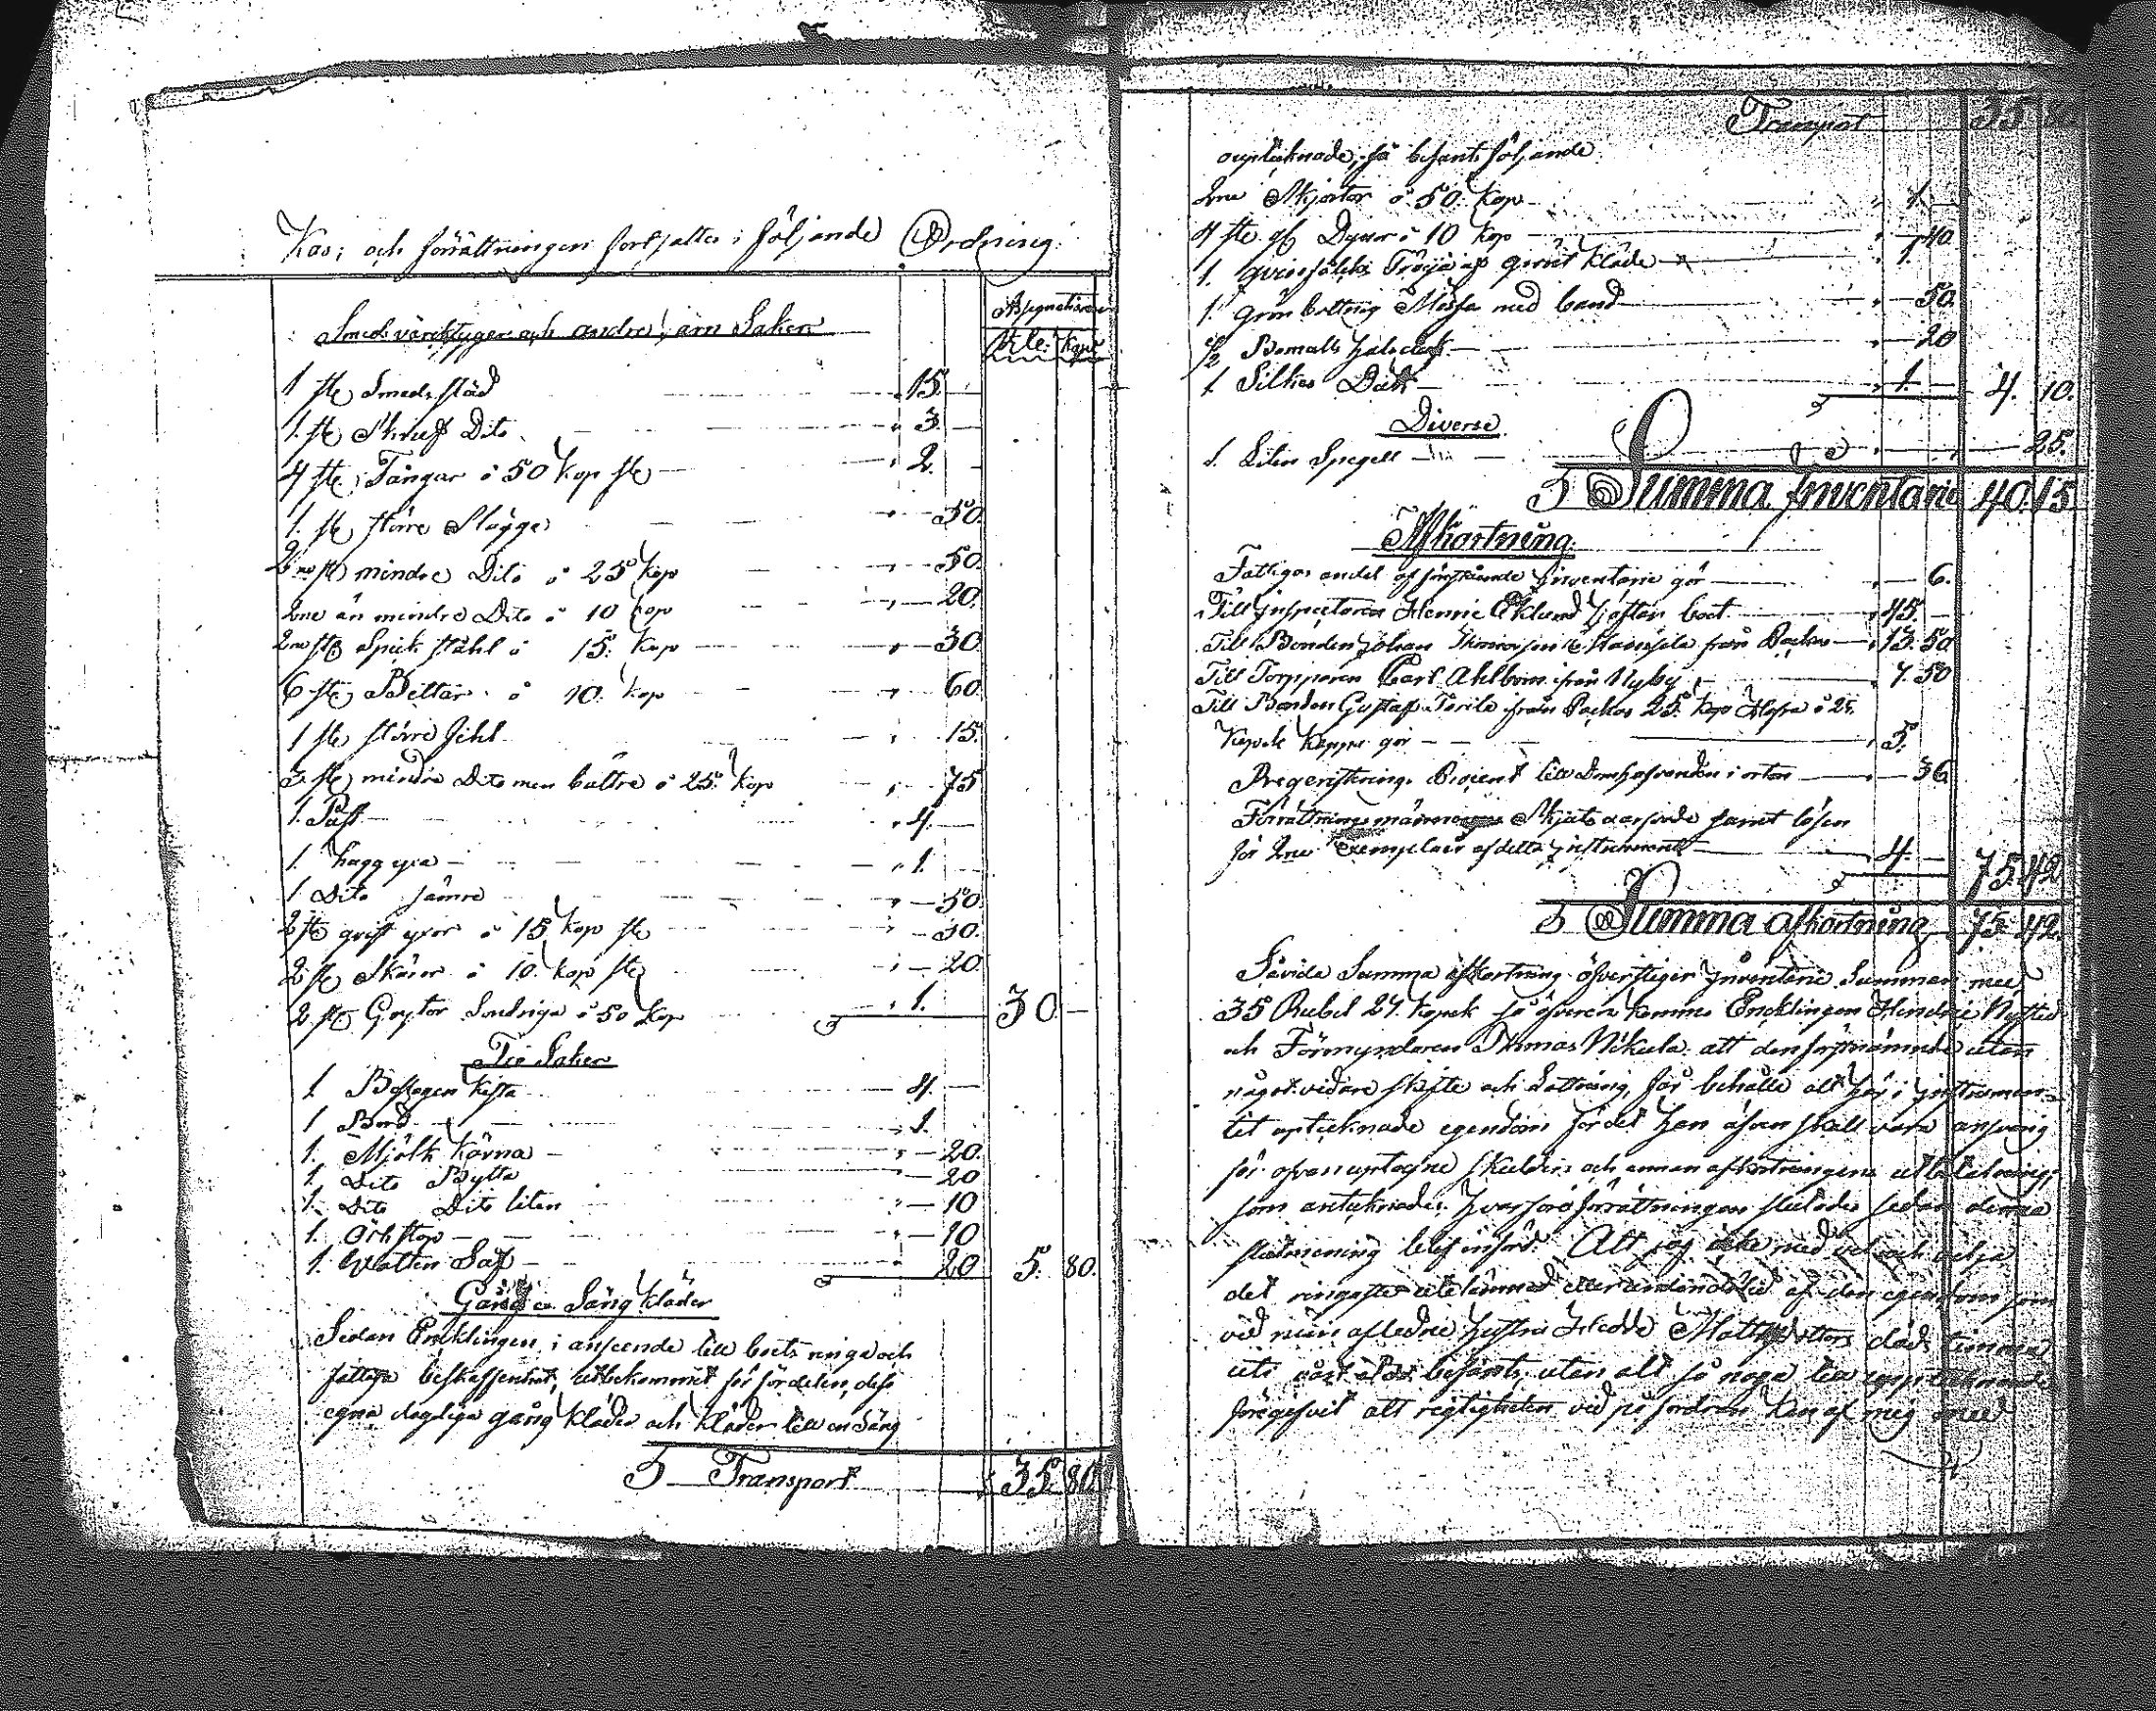 Kas; och förrättningen fortsattes i följande Ordning:
Assignationer
Smeds värcktyger och andra järn Saker
Rble. Kopk
1 st Smeds städ 15.
1. st Skruf Dito 3.
4 st. Tänger à 50 Kop st 2.
1. st större Slägga 50.
2ne st mindre Dito à 25 Kop 50.
2ne än mindre Dito à 10 Kop 20.
2ne st Spik stähl à 15. Kop 30.
6 st Bettar à 10. Kop 60.
1 st större fihl 15.
3. st mindre Dito men bättre à 25. Kop 75
1. Pust 4.
1. hugg yxa 1.
1 Dito sämre 50.
2 st grift yxor à 15 Kop st 30.
2 st Skäror à 10. Kop st 20.
2 st Grytor Sondriga à 50 Kop 1. 30
Trä Saker
1 Beslagen Kista 4.
1 Bord 1.
1. Mjölk Kärna 20.
1. Dito Bytta 20
1. Dito Dito liten 10
1. Öhl stop 10
1. Watten Så 20 5. 80.
Gång o. Säng Kläder
Sedan Encklingen i anseende till boets ringa och
fattiga beskaffenhet, utbekommit för fördelen, dess
egna dagliga gång Kläder och Kläder till en Säng
S Transport 35. 80.
Transport 35 80
oupteknade, så befants följande
2ne Skjortor à 50. Kop 1.
4 st. Dynor à 10 Kop 40.
1. qvinfolcks Tröija af grönt Kläde 1.
1. grön Mössa med band 50.
1/2 Bomulls halsduk 20
1. Silkes Duk 1. 4. 10.
Diverse
1. Liten Spegell 25.
S Summa Inventarie 40. 15
Afkortning.
Fattigas andel af förestående Inventarie gör 6.
Till Inspectoren Henric Eklund 45.
Till Bonden Johan från Backas 13. 50
Till Torpparen Carl Ahlbom från Nyby 7. 50
Till Bonden Gustaf från Backas 25. Kap Hafra à 25.
Kopek Kappe gör 5.
till Domhafvanden i orten 36
Förrättningsmännernes Skjuts samt lösen
för 2ne Exemplair af detta Instrument 4. 75. 42
S Summa afkortning 75. 42.
Såvida Summa afkortning öfverstiger Inventarie Summan med
35 Rubel 27. Kopek så öfverens kommo Encklingen Hendric
och Förmyndaren Thomas Nikula att den förstnämnde utan
något vidare skifte och dettning, får behålla allt här i Instrumen-
tet optecknade egendom för det han äfven skall vara ansvarig
för ofvan uptagne skulder och annan afkortningens utbetalning,
som antecknades. Hvarföre förrättningen slutades sedan denna
slutmening blef införd: Att jag icke med vett och vilja
det ringaste utelämnat eller undandölgt af den egendom som
vid min afledne hustru Hedda Mattsdotters död,
uti vårt bo befants, utan allt så noga till
föregifvit att rigtigheten vid på fordran kan af mig med